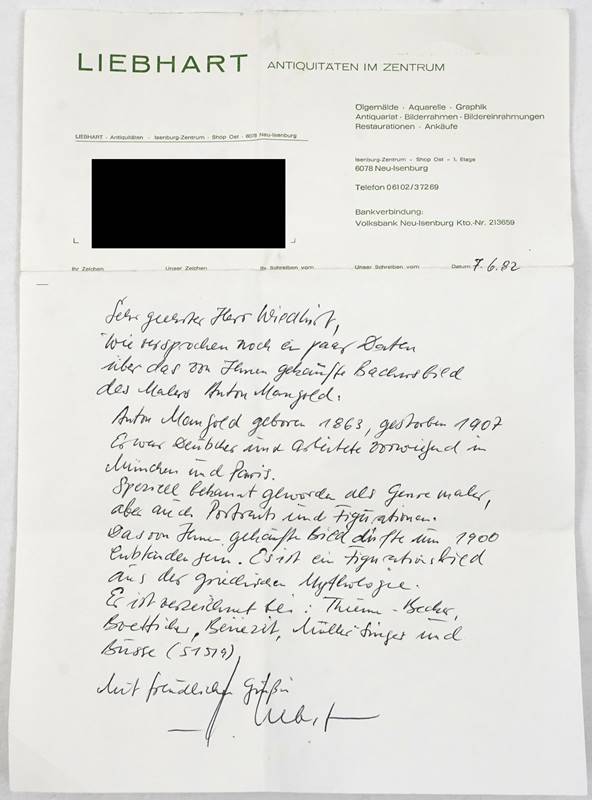 LIEBHART ANTIQUITÄTEN IM ZENTRUM
Ölgemälde · Aquarelle · Graphik
Antiquariat · Bilderrahmen · Bildereinrahmungen
Restaurationen · Ankäufe
LIEBHART - Antiquitäten - Isenburg-Zentrum - Shop Ost - 6078 Neu-Isenburg
Isenburg-Zentrum - Shop Ost - 1. Etage
6078 Neu-Isenburg
Telefon 06102/37269
Bankverbindung:
Volksbank Neu-Isenburg Kto.-Nr. 213659
Ihr Zeichen Unser Zeichen Ihr Schreiben vom Unser Schreiben vom Datum 7.6.82
Sehr geehrter Herr
Wie versprochen noch ein paar Daten
über das von Ihnen gekaufte Bacchusbild
des Malers Anton Mangold.
Anton Mangold geboren 1863, gestorben 1907
Er war Deutscher und arbeitete vorwiegend in
München und Paris.
Speziell bekannt geworden als Genremaler,
aber auch Portraits und Figurationen.
Das von Ihnen gekaufte Bild dürfte um 1900
entstanden sein. Es ist ein Figurationsbild
aus der griechischen Mythologie.
Er ist verzeichnet bei: Thieme-Becker,
Boetticher, Benezit, Müller Singer und
Busse (51519)
Mit freundlichen Grüßen